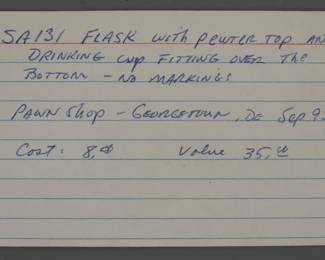 SA131 FLASK with pewter top AN
DRINKING cup FITTING OVER THE
BOTTOM - NO MARKINGS
PAWN Shop - GEORGETOWN, DE Sep 9
Cost: 8.00 Value 35.00